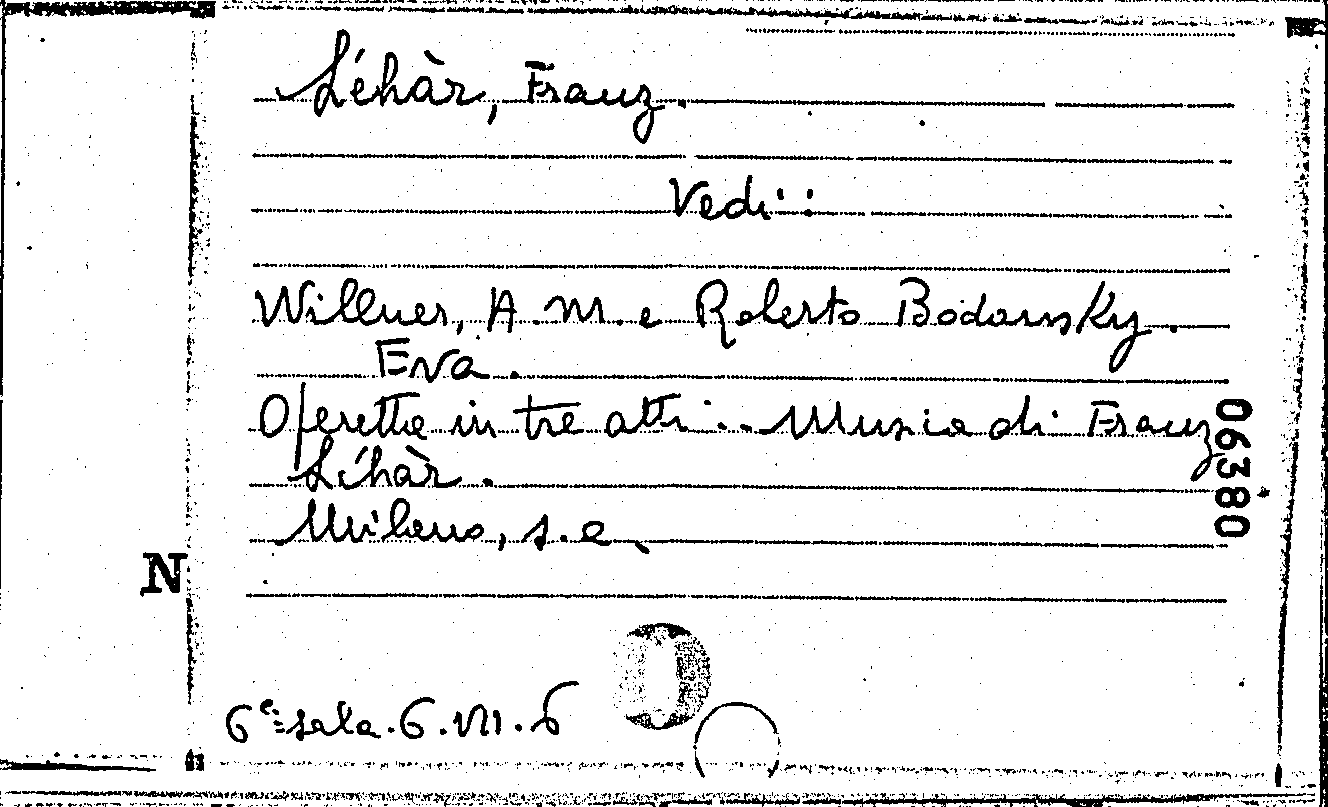 Léhàr, Franz.
Vedi:
Willner, A. M. e Roberto Bodansky.
Eva.
Operetta in tre atti.. Musica di Franz
Léhàr.
Milano, s.a.
N
06380
6ª sala. 6. VII. 6